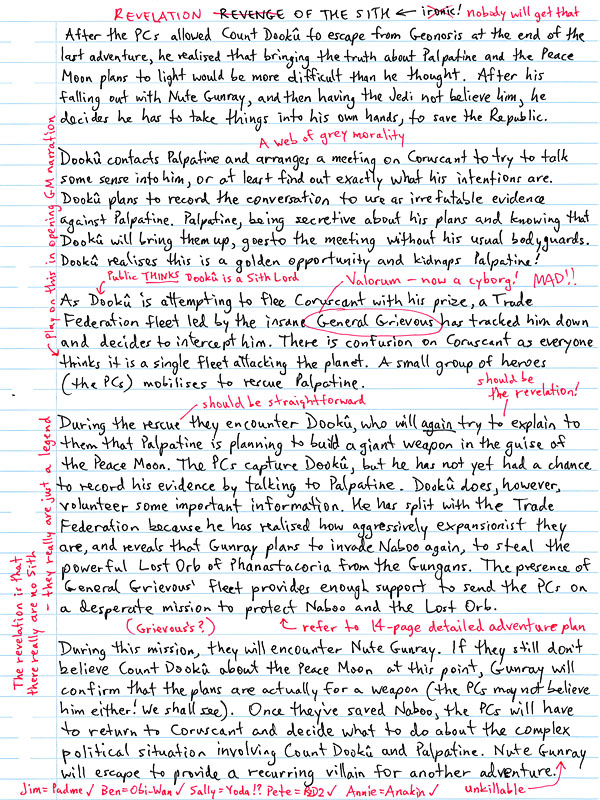 REVELATION REVENGE OF THE SITH ← ironic! nobody will get that
After the PCs allowed Count Dookû to escape from Geonosis at the end of the
last adventure, he realised that bringing the truth about Palpatine and the Peace
Moon plans to light would be more difficult than he thought. After his
falling out with Nute Gunray, and then having the Jedi not believe him, he
decides he has to take things into his own hands, to save the Republic.
A web of grey morality
Dookû contacts Palpatine and arranges a meeting on Coruscant to try to talk
some sense into him, or at least find out exactly what his intentions are.
Dookû plans to record the conversation to use as irrefutable evidence
against Palpatine. Palpatine, being secretive about his plans and knowing that
Dookû will bring them up, goes to the meeting without his usual bodyguards.
Dookû realises this is a golden opportunity and kidnaps Palpatine!
← Play on this in opening GM narration
Public THINKS Dookû is a Sith Lord
Valorum - now a cyborg! MAD!!
As Dookû is attempting to flee Coruscant with his prize, a Trade
Federation fleet led by the insane General Grievous has tracked him down
and decides to intercept him. There is confusion on Coruscant as everyone
thinks it is a single fleet attacking the planet. A small group of heroes
(the PCs) mobilises to rescue Palpatine.
should be straightforward
should be
the revelation!
During the rescue they encounter Dookû, who will again try to explain to
them that Palpatine is planning to build a giant weapon in the guise of
the Peace Moon. The PCs capture Dookû, but he has not yet had a chance
to record his evidence by talking to Palpatine. Dookû does, however,
volunteer some important information. He has split with the Trade
Federation because he has realised how aggressively expansionist they
are, and reveals that Gunray plans to invade Naboo again, to steal the
powerful Lost Orb of Phanastacoria from the Gungans. The presence of
General Grievous' fleet provides enough support to send the PCs on
a desperate mission to protect Naboo and the Lost Orb.
The revelation is that
there really are no Sith
- they really are just a legend
(Grievous's?)
← refer to 14-page detailed adventure plan
During this mission, they will encounter Nute Gunray. If they still don't
believe Count Dookû about the Peace Moon at this point, Gunray will
confirm that the plans are actually for a weapon (the PCs may not believe
him either! We shall see). Once they've saved Naboo, the PCs will have
to return to Coruscant and decide what to do about the complex
political situation involving Count Dookû and Palpatine. Nute Gunray
will escape to provide a recurring villain for another adventure.
Jim=Padme ✓ Ben=Obi-Wan ✓ Sally=Yoda!? Pete=R2D2 ✓ Annie=Anakin ✓ unkillable